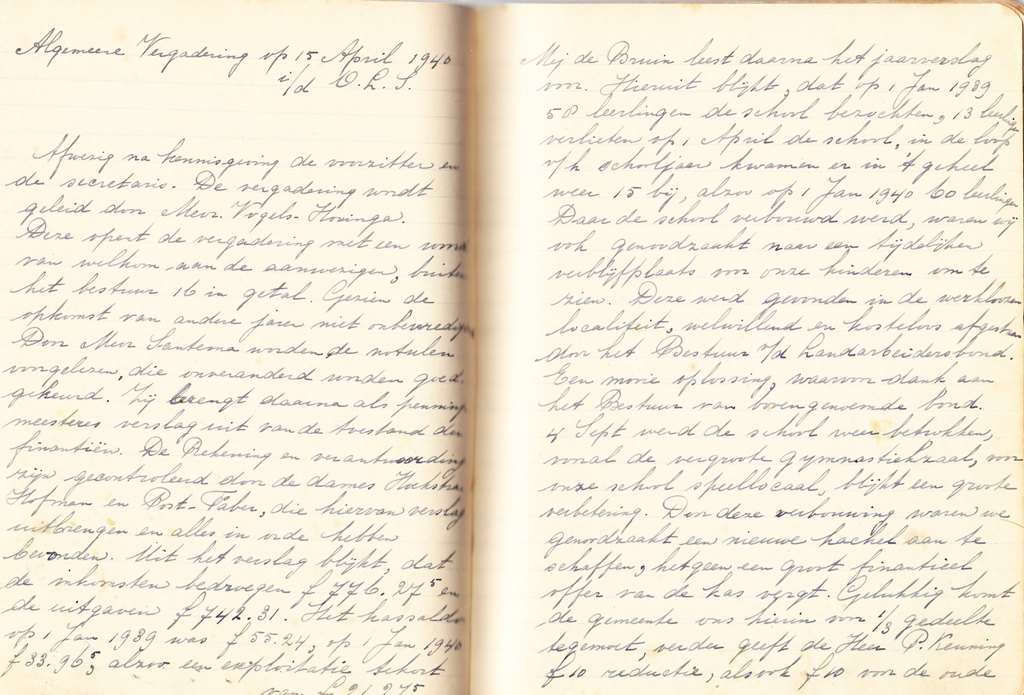 Algemeere Vergadering op 15 April 1940
i/d O.L.S.
Afwezig na kennisgeving de voorzitter en
de secretaris. De vergadering wordt
geleid door Mevr. Vogels-Houinga.
Deze opent de vergadering met een woord
van welkom aan de aanwezigen, buiten
het bestuur 16 in getal. Gezien de
opkomst van andere jaren niet onbevredigend
Door Mevr Santema worden de notulen
voorgelezen, die onveranderd worden goed-
gekeurd. Zij brengt daarna als penning
meesteres verslag uit van de toestand der
financiën. De Rekening en verantwoording
zijn gecontroleerd door de dames Hoekstra
Hofman en Post-Faber, die hiervan verslag
uitbrengen en alles in orde hebben
bevonden. Uit het verslag blijkt, dat
de inkomsten bedroegen f 776.27⁵ en
de uitgaven f 742.31. Het kassaldo
op 1 Jan 1939 was f 55.24, op 1 Jan 1940
f 33.96⁵, alzoo een exploitatie tekort
van f 21.27⁵
Mej de Bruin leest daarna het jaarverslag
voor. Hieruit blijkt, dat op 1 Jan 1939
58 leerlingen de school bezochten, 13 leerlingen
verlieten op 1 April de school, in de loop
v/h schooljaar kwamen er in 't geheel
weer 15 bij, alzoo op 1 Jan 1940 60 leerlingen
Daar de school verbouwd werd, waren wij
ook genoodzaakt naar een tijdelijken
verblijfplaats voor onze kinderen om te
zien. Deze werd gevonden in de werkloozen
localiteit, welwillend en kosteloos afgestaan
door het Bestuur v/d Landarbeidersbond.
Een mooie oplossing, waarvoor dank aan
het Bestuur van bovengenoemde bond.
4 Sept werd de school weer betrokken,
vooral de vergroote gymnastiekzaal, voor
onze school speellocaal, blijkt een groote
verbetering. Door deze verbouwing waren we
genoodzaakt een nieuwe kachel aan te
schaffen, hetgeen een groot financieel
offer van de kas vergt. Gelukkig komt
de gemeente ons hierin voor 1/3 gedeelte
tegemoet, verder geeft de Heer P. Keuning
f 10 reductie, alsook f 10 voor de oude